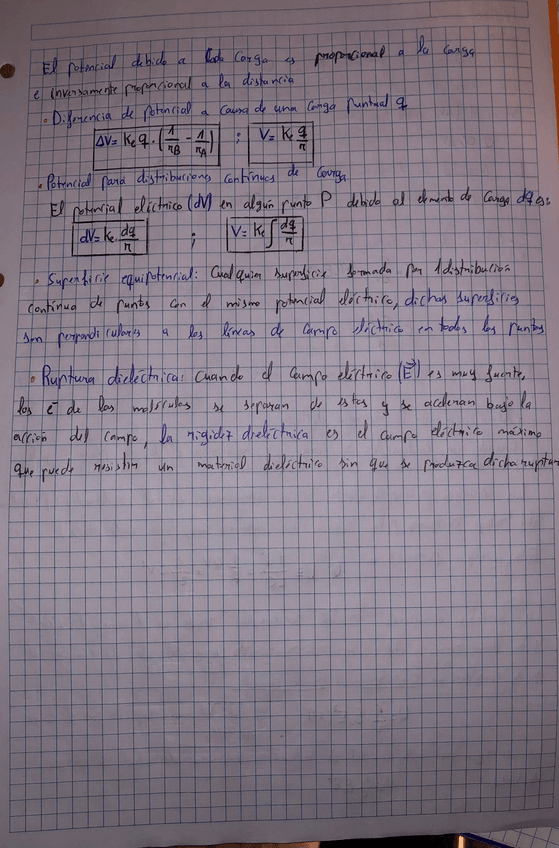 El potencial debido a cada carga es proporcional a la carga
e inversamente proporcional a la distancia
· Diferencia de potencial a causa de una carga puntual q
ΔV = Ke q · (1/rB - 1/rA) ; V = Ke q/r
· Potencial para distribuciones continuas de carga
El potencial eléctrico (dV) en algún punto P debido al elemento de carga dq es:
dV = Ke · dq/r ; V = Ke ∫ dq/r
· Superficie equipotencial: Cualquier superficie formada por 1 distribución
continua de puntos con el mismo potencial eléctrico, dichas superficies
son perpendiculares a las líneas de campo eléctrico en todos los puntos
· Ruptura dieléctrica: Cuando el campo eléctrico (E⃗) es muy fuerte,
los e⁻ de las moléculas se separan de estas y se aceleran bajo la
acción del campo, la rigidez dieléctrica es el campo eléctrico máximo
que puede resistir un material dieléctrico sin que se produzca dicha ruptura